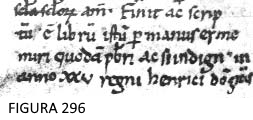 Finit ac scrip
tū ē librū istū p manus erme
miri quodā p̄bri ac si indign' in
anno xxv regni henrici
FIGURA 296